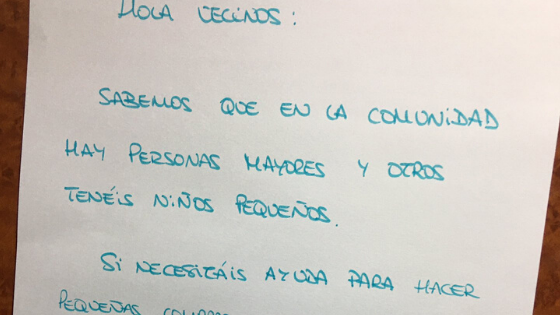 HOLA VECINOS:
SABEMOS QUE EN LA COMUNIDAD
HAY PERSONAS MAYORES Y OTROS
TENÉIS NIÑOS PEQUEÑOS.
SI NECESITÁIS AYUDA PARA HACER
PEQUEÑAS